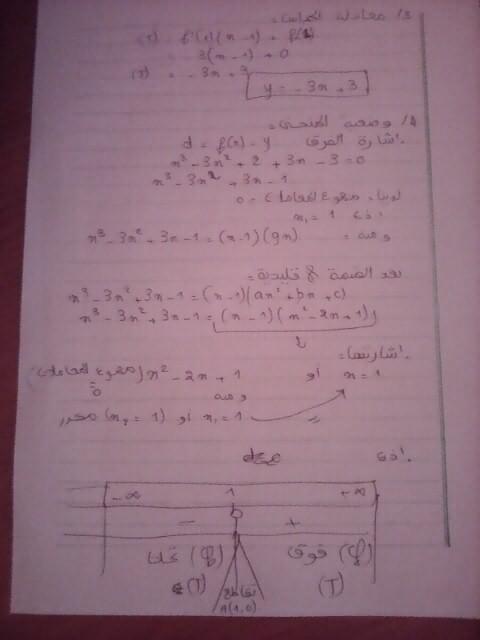 3/ معادلة المماس:
(T) = f'(1)(x-1) + f(1)
3(x-1) + 0
(T) = -3x + 3
y = -3x + 3
4/ وضعية المنحنى:
إشارة الفرق d = f(x) - y
x³ - 3x² + 2 + 3x - 3 = 0
x³ - 3x² + 3x - 1
لدينا: مجموع المعاملات = 0
إذن x₁ = 1
ومنه: x³ - 3x² + 3x - 1 = (x-1)(g(x)
بعد القسمة الإقليدية:
x³ - 3x² + 3x - 1 = (x-1)(ax² + bx + c)
x³ - 3x² + 3x - 1 = (x-1)(x² - 2x + 1)
إشارتها:
x = 1 أو x² - 2x + 1 (مجموع المعاملات)
0
ومنه
x₁ = 1 أو (x₂ = 1) مكرر
إذن
-∞ 1 +∞
- 0 +
(Cf) تحت (Cf) فوق
(T) (T)
تقاطع
A(1,0)